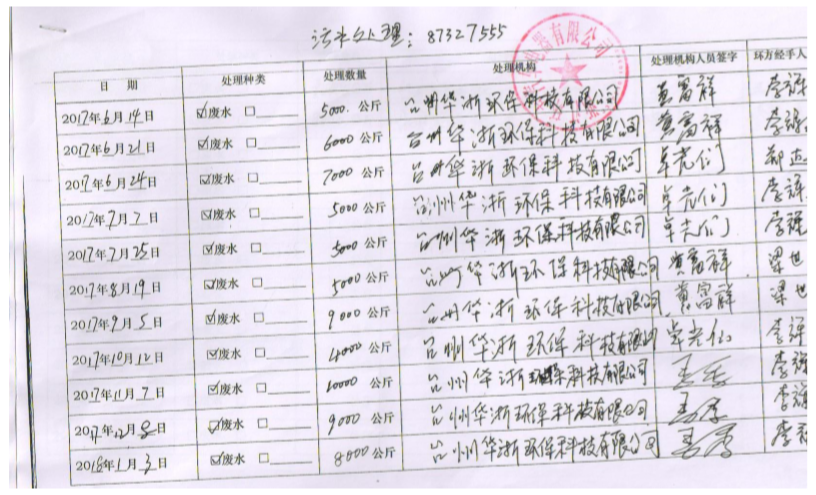 污水处理：87327555
日 期 处理种类 处理数量 处理机构 处理机构人员签字 环方经手人
2017年6月14日 ☑废水 □ 5000 公斤 台州华浙环保科技有限公司 黄富祥
2017年6月21日 ☑废水 □ 6000 公斤 台州华浙环保科技有限公司 黄富祥
2017年6月24日 ☑废水 □ 7000 公斤 台州华浙环保科技有限公司
2017年7月7日 ☑废水 □ 5000 公斤 台州华浙环保科技有限公司
2017年7月25日 ☑废水 □ 5000 公斤 台州华浙环保科技有限公司
2017年8月19日 ☑废水 □ 5000 公斤 台州华浙环保科技有限公司 黄富祥
2017年9月5日 ☑废水 □ 9000 公斤 台州华浙环保科技有限公司 黄富祥
2017年10月12日 ☑废水 □ 4000 公斤 台州华浙环保科技有限公司
2017年11月7日 ☑废水 □ 10000 公斤 台州华浙环保科技有限公司
2017年12月8日 ☑废水 □ 9000 公斤 台州华浙环保科技有限公司
2018年1月3日 ☑废水 □ 8000 公斤 台州华浙环保科技有限公司